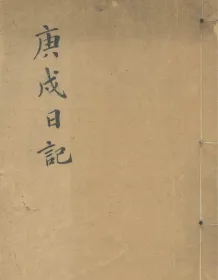 庚戌日記